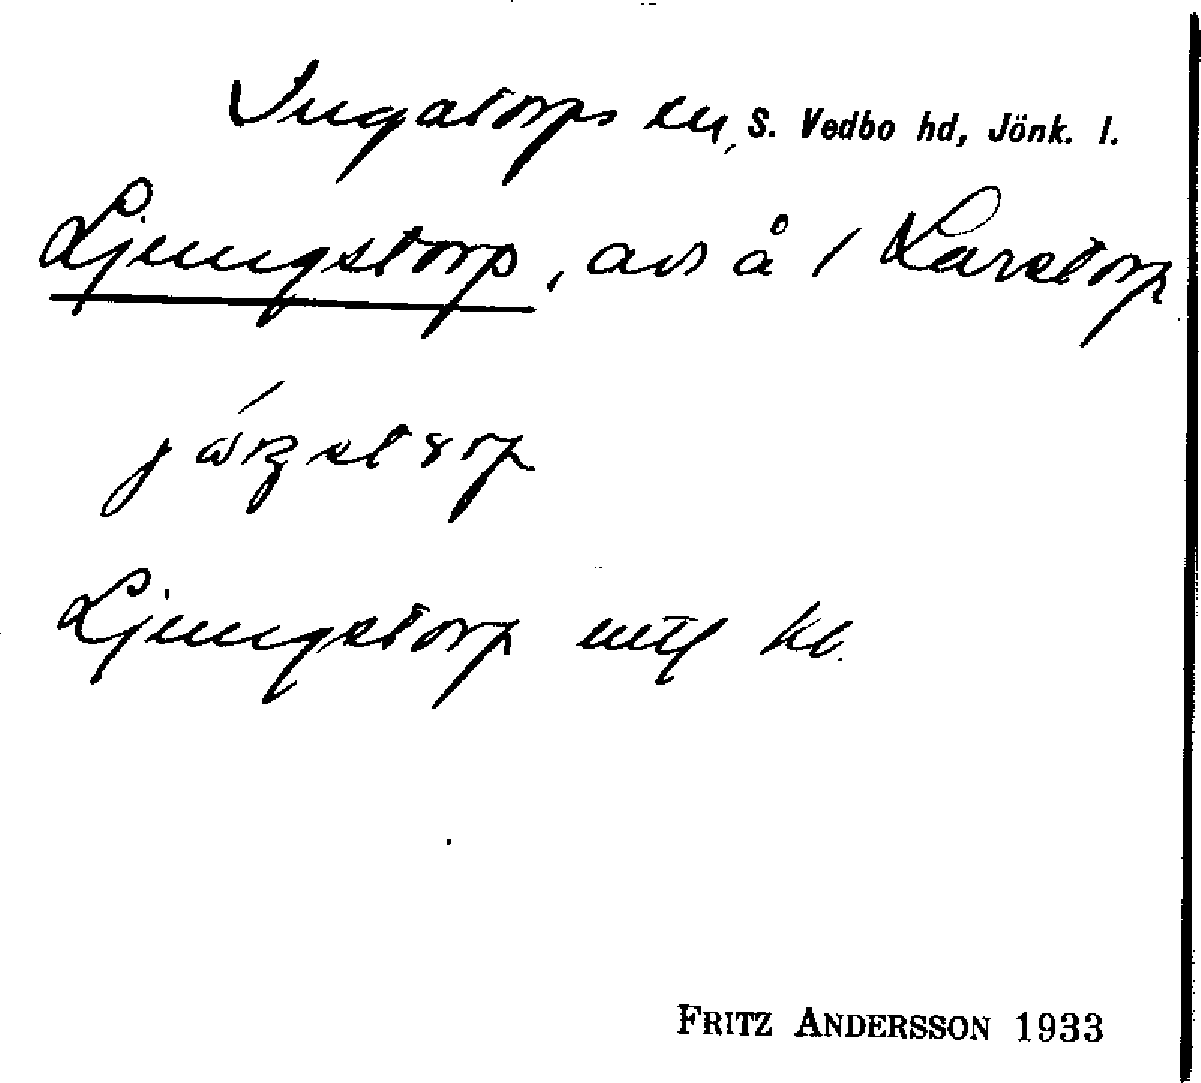 Ingatorps sn, S. Vedbo hd, Jönk. l.
Ljungstorp, avs å 1 Larstorp
Ljungstorp mtl kb.
FRITZ ANDERSSON 1933